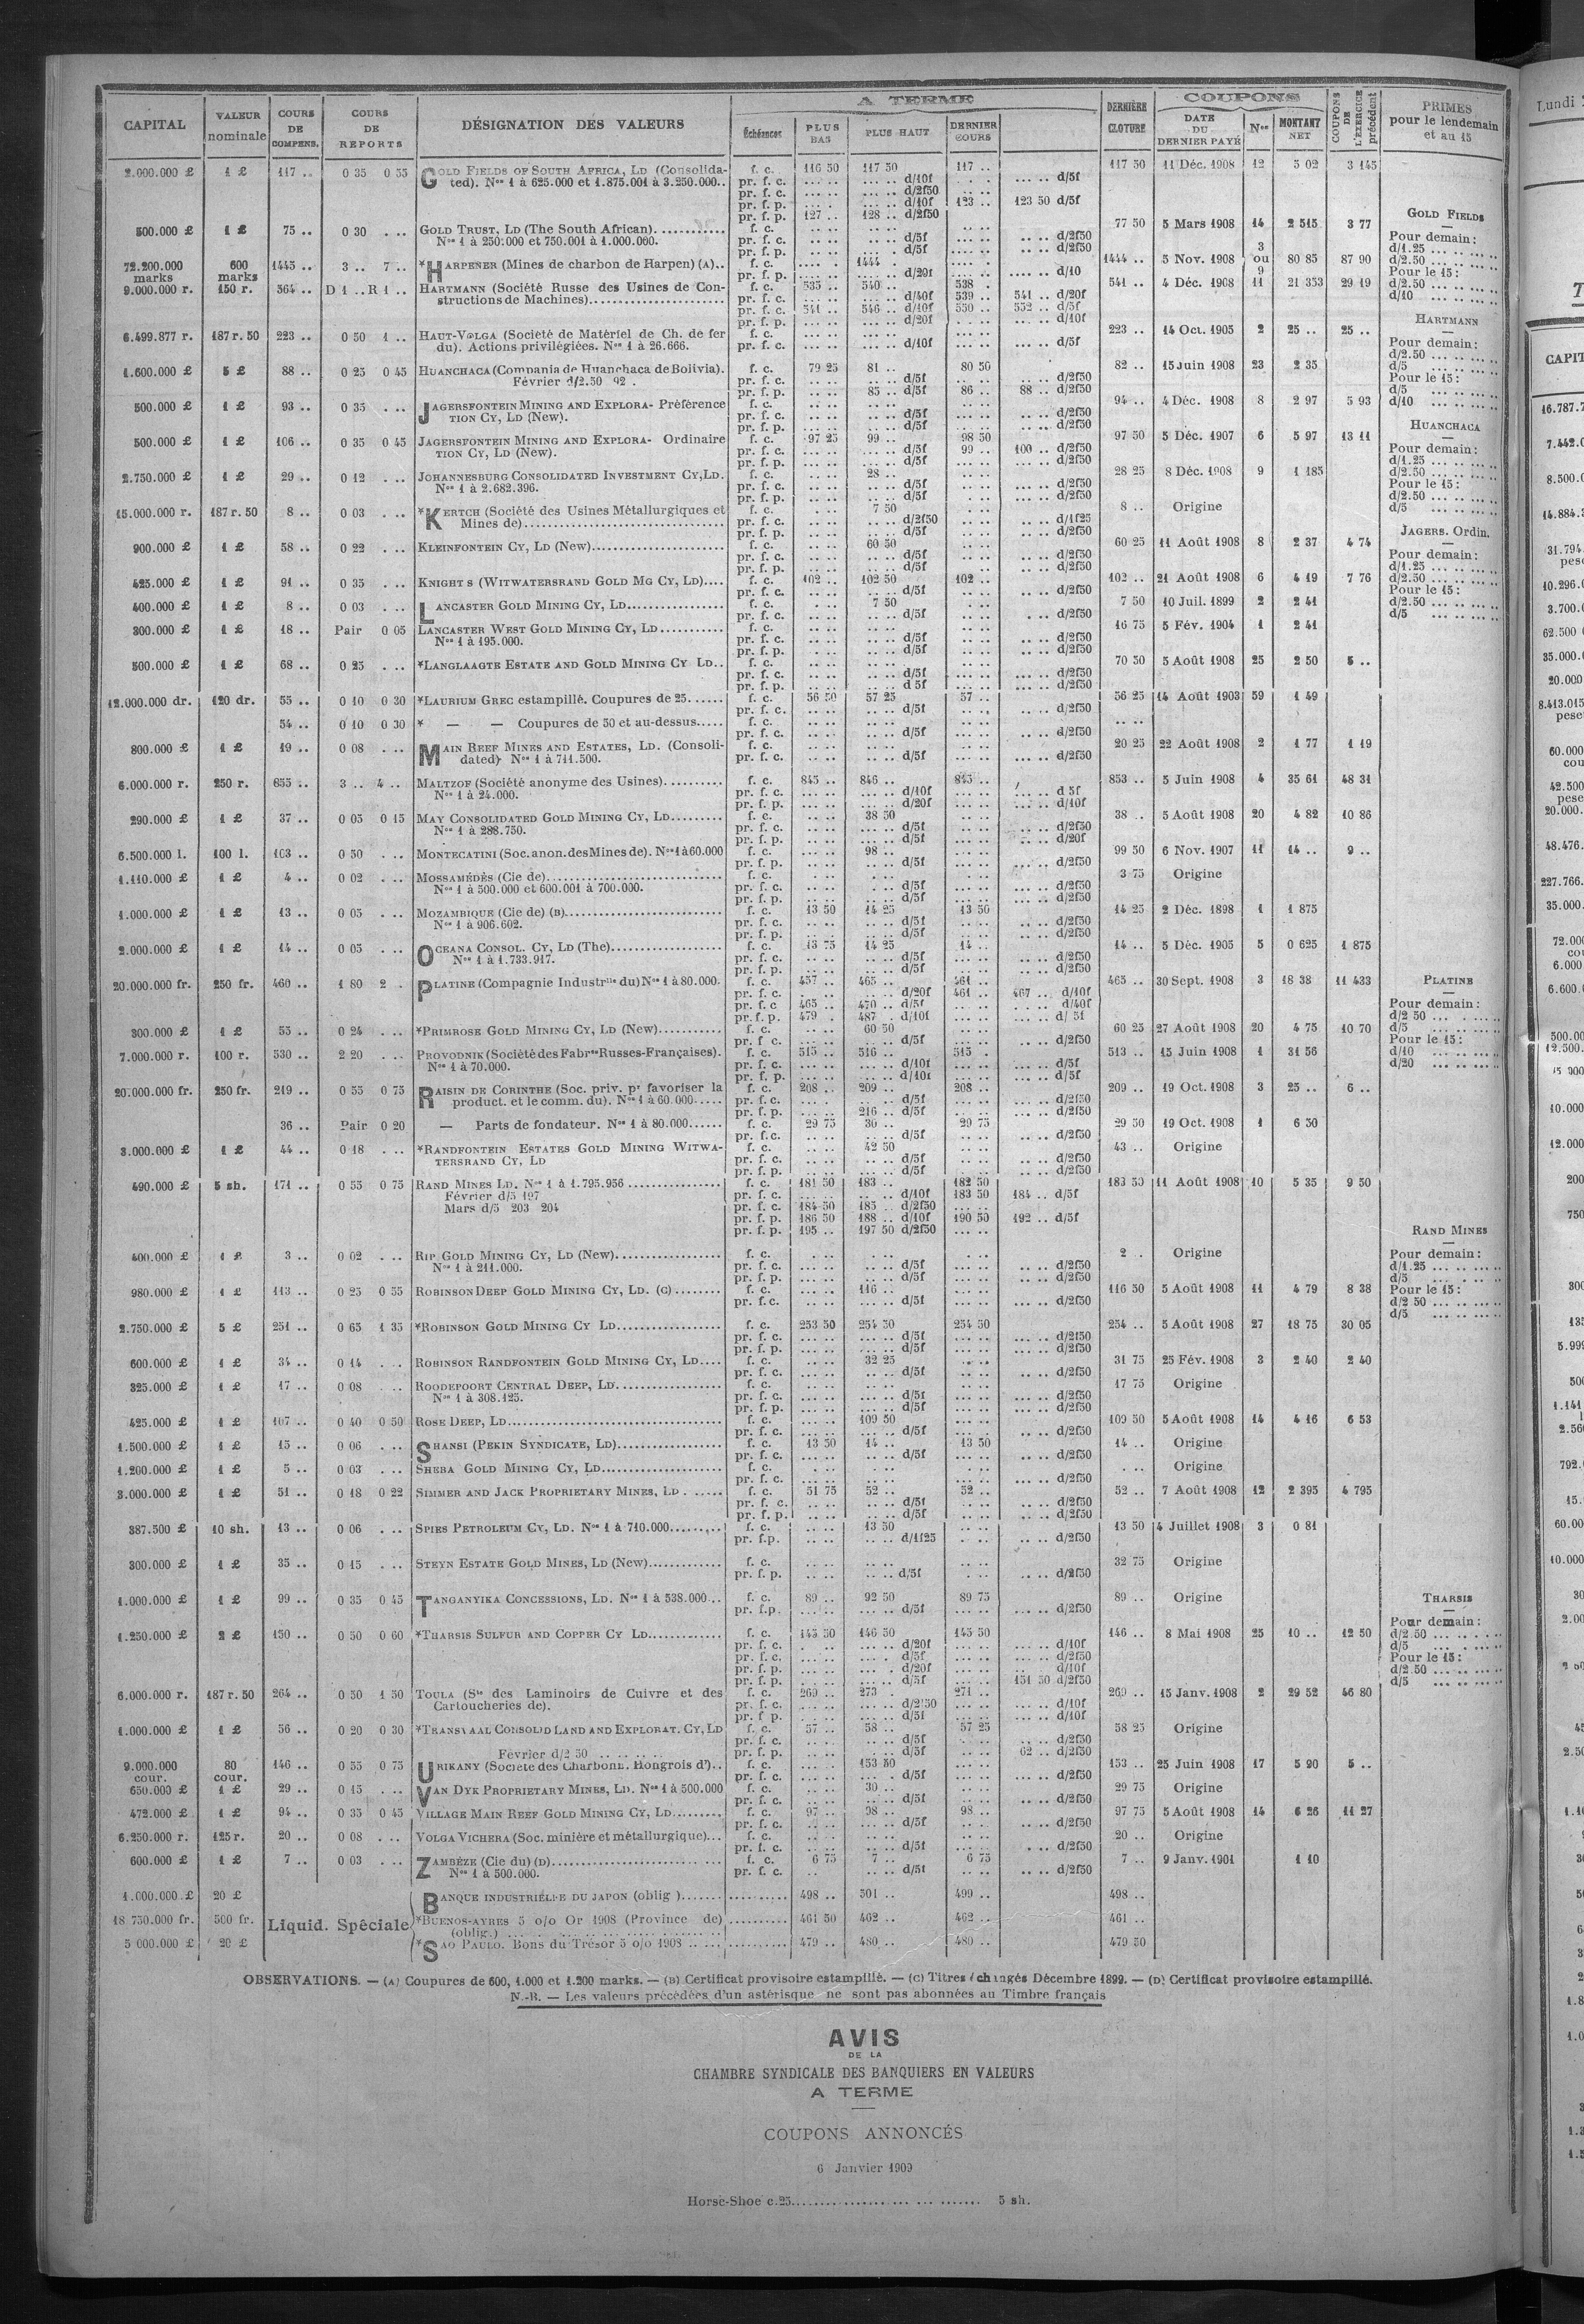 CAPITAL | VALEUR nominale | COURS DE COMPENS. | COURS DE REPORTS | DÉSIGNATION DES VALEURS | A TERME | Échéances | PLUS BAS | PLUS HAUT | DERNIER COURS | DERNIÈRE CLOTURE | COUPONS | DATE DU DERNIER PAYÉ | Nos | MONTANT NET | COUPONS DE L'EXERCICE précédent | PRIMES pour le lendemain et au 15
2.000.000 £ 1 £ 117 .. 0 35 0 55 GOLD FIELDS OF SOUTH AFRICA, LD (Consolida- f. c. 116 50 117 50 117 .. 117 50 11 Déc. 1908 12 5 02 3 145
ted). Nos 1 à 625.000 et 1.875.001 à 3.250.000.. pr. f. c. d/10f d/5f
pr. f. c. d/2f50
pr. f. p. d/10f 123 .. 123 50 d/5f
pr. f. p. 127 .. 128 .. d/2f50
500.000 £ 1 £ 75 .. 0 30 GOLD TRUST, LD (The South African) f. c. 77 50 5 Mars 1908 14 2 515 3 77
Nos 1 à 250.000 et 750.001 à 1.000.000. pr. f. c. d/5f d/2f50
pr. f. p. d/5f d/2f50
72.200.000 marks 600 marks 1445 .. 3 .. 7 .. *HARPENER (Mines de charbon de Harpen) (A).. f. c. 1444 .. 1444 .. 5 Nov. 1908 3 ou 9 80 85 87 90
pr. f. p. d/20f d/10
9.000.000 r. 150 r. 564 .. D 1 .. R 1 .. HARTMANN (Société Russe des Usines de Con- f. c. 535 .. 540 .. 538 . 541 .. 4 Déc. 1908 11 21 353 29 19
structions de Machines) pr. f. c. d/40f 539 .. 541 .. d/20f
pr. f. c. 541 .. 546 .. d/10f 550 .. 552 .. d/5f
pr. f. p. d/20f d/10f
6.499.877 r. 187 r. 50 223 .. 0 50 1 .. HAUT-VOLGA (Société de Matériel de Ch. de fer f. c. 223 .. 14 Oct. 1905 2 25 .. 25 ..
du). Actions privilégiées. Nos 1 à 26.666. pr. f. c. d/10f d/5f
1.600.000 £ 5 £ 88 .. 0 25 0 45 HUANCHACA (Compania de Huanchaca de Bolivia). f. c. 79 25 81 .. 80 50 82 .. 15 Juin 1908 23 2 35
Février d/2.50 92 . pr. f. c. d/5f d/2f50
pr. f. p. 85 .. d/5f 86 .. 88 .. d/2f50
500.000 £ 1 £ 93 .. 0 35 JAGERSFONTEIN MINING AND EXPLORA- Préférence f. c. 94 .. 4 Déc. 1908 8 2 97 5 93
TION CY, LD (New). pr. f. c. d/5f d/2f50
pr. f. p. d/5f d/2f50
500.000 £ 1 £ 106 .. 0 35 0 45 JAGERSFONTEIN MINING AND EXPLORA- Ordinaire f. c. 97 25 99 .. 98 50 97 50 5 Déc. 1907 6 5 97 13 11
TION CY, LD (New). pr. f. c. d/5f 99 .. 100 .. d/2f50
pr. f. p. d/5f d/2f50
2.750.000 £ 1 £ 29 .. 0 12 JOHANNESBURG CONSOLIDATED INVESTMENT CY, LD. f. c. 28 .. 28 25 8 Déc. 1908 9 1 185
Nos 1 à 2.682.396. pr. f. c. d/5f d/2f50
pr. f. p. d/5f d/2f50
15.000.000 r. 187 r. 50 8 .. 0 03 *KERTCH (Société des Usines Métallurgiques et f. c. 7 50 8 .. Origine
Mines de) pr. f. c. d/2f50 d/1f25
pr. f. p. d/5f d/2f50
900.000 £ 1 £ 58 .. 0 22 KLEINFONTEIN CY, LD (New) f. c. 60 50 60 25 11 Août 1908 8 2 37 4 74
pr. f. c. d/5f d/2f50
pr. f. p. d/5f d/2f50
425.000 £ 1 £ 91 .. 0 35 KNIGHT S (WITWATERSRAND GOLD MG CY, LD) f. c. 102 .. 102 50 102 .. 102 .. 21 Août 1908 6 4 19 7 76
pr. f. c. d/5f d/2f50
400.000 £ 1 £ 8 .. 0 03 LANCASTER GOLD MINING CY, LD f. c. 7 50 7 50 10 Juil. 1899 2 2 41
pr. f. c. d/5f d/2f50
300.000 £ 1 £ 18 .. Pair 0 05 LANCASTER WEST GOLD MINING CY, LD f. c. 16 75 5 Fév. 1904 1 2 41
Nos 1 à 195.000. pr. f. c. d/5f d/2f50
pr. f. p. d/5f d/2f50
500.000 £ 1 £ 68 .. 0 25 *LANGLAAGTE ESTATE AND GOLD MINING CY LD.. f. c. 70 50 5 Août 1908 25 2 50 5 ..
pr. f. c. d/5f d/2f50
pr. f. p. d 5f d/2f50
12.000.000 dr. 120 dr. 55 .. 0 10 0 30 *LAURIUM GREC estampillé. Coupures de 25 f. c. 56 50 57 25 57 .. 56 25 14 Août 1903 59 1 49
pr. f. c. d/5f d/2f50
54 .. 0 10 0 30 * — — Coupures de 50 et au-dessus f. c.
pr. f. c. d/5f d/2f50
800.000 £ 1 £ 19 .. 0 08 MAIN REEF MINES AND ESTATES, LD. (Consoli- f. c. 20 25 22 Août 1908 2 1 77 1 19
dated) Nos 1 à 711.500. pr. f. c. d/5f d/2f50
6.000.000 r. 250 r. 855 .. 3 .. 4 .. MALTZOF (Société anonyme des Usines) f. c. 845 .. 846 .. 845 .. 853 .. 5 Juin 1908 4 35 61 48 31
Nos 1 à 24.000. pr. f. c. d/10f d 5f
pr. f. p. d/20f d/10f
290.000 £ 1 £ 37 .. 0 05 0 15 MAY CONSOLIDATED GOLD MINING CY, LD f. c. 38 50 38 .. 5 Août 1908 20 4 82 10 86
Nos 1 à 288.750. pr. f. c. d/5f d/2f50
pr. f. p. d/5f d/20f
6.500.000 l. 100 l. 103 .. 0 50 MONTECATINI (Soc. anon. des Mines de). Nos 1 à 60.000 f. c. 98 .. 99 50 6 Nov. 1907 11 14 .. 9 ..
pr. f. p. d/5f d/2f50
1.110.000 £ 1 £ 4 .. 0 02 MOSSAMÉDÈS (Cie de) f. c. 3 75 Origine
Nos 1 à 500.000 et 600.001 à 700.000. pr. f. c. d/5f d/2f50
pr. f. p. d/5f d/2f50
1.000.000 £ 1 £ 13 .. 0 05 MOZAMBIQUE (Cie de) (B) f. c. 13 50 14 25 13 50 14 25 2 Déc. 1898 1 1 875
Nos 1 à 906.602. pr. f. c. d/5f d/2f50
pr. f. p. d/5f d/2f50
2.000.000 £ 1 £ 14 .. 0 05 OCEANA CONSOL. CY, LD (The) f. c. 13 75 14 25 14 .. 14 .. 5 Déc. 1905 5 0 625 1 875
Nos 1 à 1.733.917. pr. f. c. d/5f d/2f50
pr. f. p. d/5f d/2f50
20.000.000 fr. 250 fr. 460 .. 1 80 2 . PLATINE (Compagnie Industrlle du) Nos 1 à 80.000. f. c. 457 .. 465 .. 461 .. 465 .. 30 Sept. 1908 3 18 38 11 433
pr. f. c. d/20f 461 .. 467 .. d/10f
pr. f. c 465 .. 470 .. d/5f d/40f
pr. f. p. 479 . 487 . d/10f d/ 5f
300.000 £ 1 £ 55 .. 0 24 *PRIMROSE GOLD MINING CY, LD (New) f. c. 60 50 60 25 27 Août 1908 20 4 75 10 70
pr. f c. d/5f d/2f50
7.000.000 r. 100 r. 530 .. 2 20 PROVODNIK (Société des Fabres Russes-Françaises). f. c. 515 .. 516 .. 515 . 513 .. 15 Juin 1908 1 31 56
Nos 1 à 70.000. pr. f. c. d/10f d/5f
pr. f. p. d/10f d/5f
20.000.000 fr. 250 fr. 219 .. 0 55 0 75 RAISIN DE CORINTHE (Soc. priv. pr favoriser la f. c. 208 .. 209 .. 208 .. 209 .. 19 Oct. 1908 3 25 .. 6 ..
product. et le comm. du). Nos 1 à 60.000 pr. f. c. d/5f d/2f50
pr. f. p. 216 .. d/5f d/2f50
36 .. Pair 0 20 — Parts de fondateur. Nos 1 à 80.000 f. c. 29 75 30 .. 29 75 29 50 19 Oct. 1908 1 6 30
pr. f.c. d/5f d/2f50
3.000.000 £ 1 £ 44 .. 0 18 *RANDFONTEIN ESTATES GOLD MINING WITWA- f. c. 42 50 43 .. Origine
TERSRAND CY, LD pr. f. c. d/5f d/2f50
pr. f. p. d/5f d/2f50
490.000 £ 5 sh. 171 .. 0 55 0 75 RAND MINES LD. Nos 1 à 1.795.956 f. c. 181 50 183 .. 182 50 183 50 11 Août 1908 10 5 35 9 50
Février d/5 197 pr. f. c. d/10f 183 50 184 .. d/5f
Mars d/5 203 204 pr. f. c. 184 50 185 .. d/2f50
pr. f. p. 186 50 188 .. d/10f 190 50 192 .. d/5f
pr. f. p. 195 .. 197 50 d/2f50
400.000 £ 1 £ 3 .. 0 02 RIP GOLD MINING CY, LD (New) f. c. 2 .. Origine
Nos 1 à 211.000. pr. f. c. d/5f d/2f50
pr. f. p. d/5f d/2f50
980.000 £ 1 £ 113 .. 0 25 0 55 ROBINSON DEEP GOLD MINING CY, LD. (C) f. c. 116 .. 116 50 5 Août 1908 11 4 79 8 38
pr. f.c. d/5f d/2f50
2.750.000 £ 5 £ 251 .. 0 65 1 35 *ROBINSON GOLD MINING CY LD f. c. 253 50 254 50 254 50 254 .. 5 Août 1908 27 18 75 30 05
pr. f. c. d/5f d/2f50
pr. f. p. d/5f d/2f50
600.000 £ 1 £ 34 .. 0 14 ROBINSON RANDFONTEIN GOLD MINING CY, LD f. c. 32 25 31 75 25 Fév. 1908 3 2 40 2 40
pr. f. c. d/5f d/2f50
325.000 £ 1 £ 17 .. 0 08 ROODEPOORT CENTRAL DEEP, LD f. c. 17 75 Origine
Nos 1 à 308.125. pr. f. c. d/5f d/2f50
pr. f. p. d/5f d/2f50
425.000 £ 1 £ 107 .. 0 40 0 50 ROSE DEEP, LD f. c. 109 50 109 50 5 Août 1908 14 4 16 6 53
pr. f. c. d/5f d/2f50
1.500.000 £ 1 £ 15 .. 0 06 SHANSI (PEKIN SYNDICATE, LD) f. c. 13 50 14 .. 13 50 14 .. Origine
pr. f. c. d/5f d/2f50
1.200.000 £ 1 £ 5 .. 0 03 SHEBA GOLD MINING CY, LD f. c. Origine
pr. f. c. d/2f50
3.000.000 £ 1 £ 51 .. 0 18 0 22 SIMMER AND JACK PROPRIETARY MINES, LD f. c. 51 75 52 .. 52 .. 52 .. 7 Août 1908 12 2 395 4 795
pr. f. c. d/5f d/2f50
pr. f. p. d/5f d/2f50
387.500 £ 10 sh. 13 .. 0 06 SPIES PETROLEUM CY, LD. Nos 1 à 710.000 f. c. 13 50 13 50 4 Juillet 1908 3 0 81
pr. f.p. d/1f25 d/2f50
300.000 £ 1 £ 35 .. 0 15 STEYN ESTATE GOLD MINES, LD (New) f. c. 32 75 Origine
pr. f. p. d/5f d/2f50
1.000.000 £ 1 £ 99 .. 0 35 0 45 TANGANYIKA CONCESSIONS, LD. Nos 1 à 538.000 f. c. 89 .. 92 50 89 75 89 .. Origine
pr. f.p. d/5f d/2f50
1.250.000 £ 2 £ 150 .. 0 50 0 60 *THARSIS SULFUR AND COPPER CY LD f. c. 145 50 146 50 145 50 146 .. 8 Mai 1908 25 10 .. 12 50
pr. f. c. d/20f d/10f
pr. f. c. d/5f d/2f50
pr. f. p. d/20f d/10f
pr. f. p. d/5f 151 50 d/2f50
6.000.000 r. 187 r. 50 264 .. 0 50 1 50 TOULA (Sté des Laminoirs de Cuivre et des f. c. 269 .. 273 . 271 .. 269 .. 15 Janv. 1908 2 29 52 46 80
Cartoucheries de). pr. f. c. d/2f50 d/10f
pr. f p. d/5f d/10f
1.000.000 £ 1 £ 56 .. 0 20 0 30 *TRANSVAAL CONSOLID LAND AND EXPLORAT. CY, LD f. c. 57 .. 58 .. 57 25 58 25 Origine
pr. f. c. d/5f d/2f50
Février d/2 50 pr. f. p. d/5f 62 .. d/2f50
9.000.000 cour. 80 cour. 146 .. 0 55 0 75 URIKANY (Société des Charbonn. Hongrois d').. f. c. 153 50 153 .. 25 Juin 1908 17 5 90 5 ..
pr. f. c. d/5f d/2f50
650.000 £ 1 £ 29 .. 0 15 VAN DYK PROPRIETARY MINES, LD. Nos 1 à 500.000 f. c. 30 .. 29 75 Origine
pr. f. c. d/5f d/2f50
472.000 £ 1 £ 94 .. 0 35 0 45 VILLAGE MAIN REEF GOLD MINING CY, LD f. c. 97 .. 98 .. 98 .. 97 75 5 Août 1908 14 6 26 11 27
pr. f. c. d/5f d/2f50
6.250.000 r. 125 r. 20 .. 0 08 VOLGA VICHERA (Soc. minière et métallurgique) f. c. 20 .. Origine
pr. f. c. d/5f d/2f50
600.000 £ 1 £ 7 .. 0 03 ZAMBÈZE (Cie du) (D) f. c. 6 75 7 .. 6 75 7 .. 9 Janv. 1901 1 10
Nos 1 à 500.000. pr. f. c. d/5f d/2f50
1.000.000 £ 20 £ BANQUE INDUSTRIELLE DU JAPON (oblig ) 498 .. 501 .. 499 .. 498 ..
18 750.000 fr. 500 fr. Liquid. Spéciale *BUENOS-AYRES 5 o/o Or 1908 (Province de) 461 50 462 .. 462 .. 461 ..
(oblig.)
5 000.000 £ 20 £ *SAO PAULO. Bons du Trésor 5 o/o 1908 479 .. 480 .. 480 .. 479 50
GOLD FIELDS
Pour demain:
d/1.25
d/2.50
Pour le 15:
d/2.50
d/10
HARTMANN
Pour demain:
d/2.50
d/5
Pour le 15:
d/5
d/10
HUANCHACA
Pour demain:
d/1.25
d/2.50
Pour le 15:
d/2.50
d/5
JAGERS. Ordin.
Pour demain:
d/1.25
d/2.50
Pour le 15:
d/2.50
d/5
PLATINE
Pour demain:
d/2 50
d/5
Pour le 15:
d/10
d/20
RAND MINES
Pour demain:
d/1.25
d/5
Pour le 15:
d/2 50
d/5
THARSIS
Pour demain:
d/2.50
d/5
Pour le 15:
d/2.50
d/5
OBSERVATIONS. — (A) Coupures de 600, 1.000 et 1.200 marks. — (B) Certificat provisoire estampillé. — (C) Titres échangés Décembre 1899. — (D) Certificat provisoire estampillé.
N.-B. — Les valeurs précédées d'un astérisque ne sont pas abonnées au Timbre français
AVIS
DE LA
CHAMBRE SYNDICALE DES BANQUIERS EN VALEURS
A TERME
COUPONS ANNONCÉS
6 Janvier 1909
Horse-Shoe c.25 5 sh.
Lundi
CAPIT